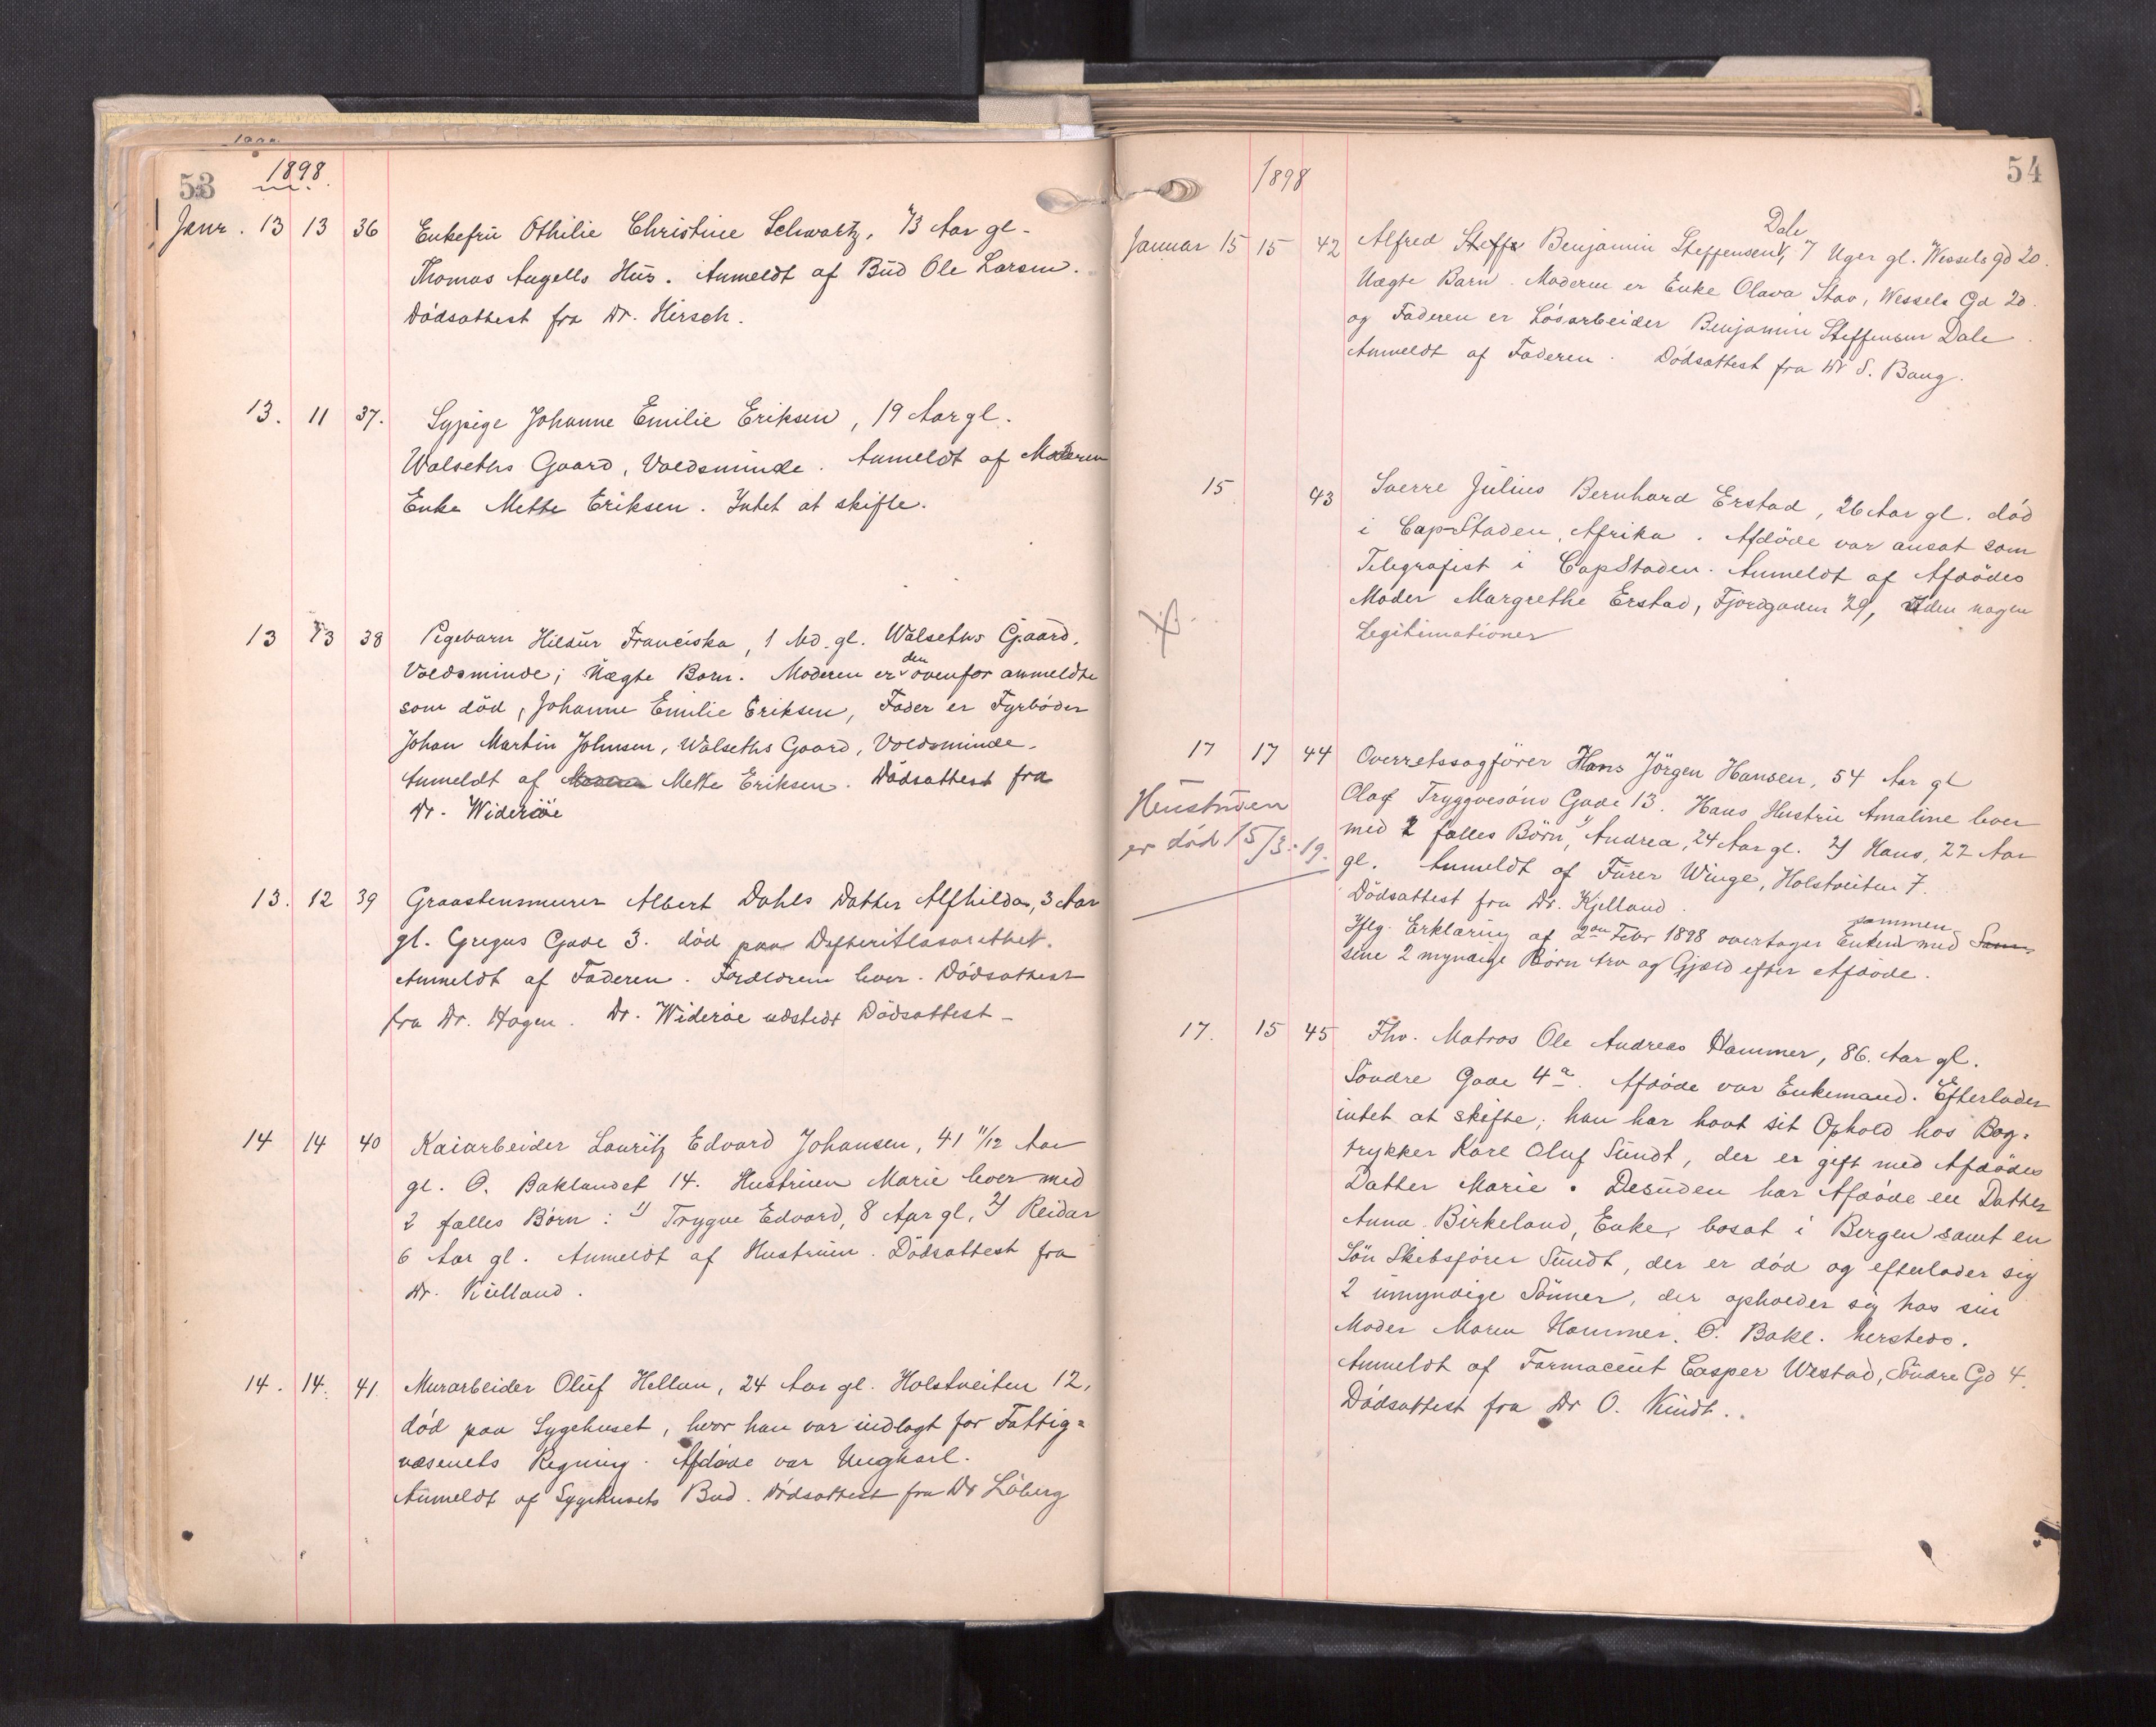 53
1898.
Janr. 13 13 36 Enkefru Othilie Christine Schwartz, 73 Aar gl.
Thomas Angells Hus. Anmeldt af Bud Ole Larsen.
Dödsattest fra Dr. Hirsch.
13. 11 37. Sypige Johanne Emilie Eriksen, 19 Aar gl.
Walseths Gaard, Voldsminde. Anmeldt af Moderen
Enke Mette Eriksen. Intet at skifte.
13 13 38 Pigebarn Hildur Franciska, 1 Md. gl. Walseths Gaard,
Voldsminde; Uægte Barn. Moderen er den ovenfor anmeldte
som död, Johanne Emilie Eriksen, Fader er Fyrböder
Johan Martin Johnsen, Walseths Gaard, Voldsminde.
Anmeldt af Mette Eriksen. Dödsattest fra
Dr. Wideröe
13. 12 39 Graastensmurer Albert Dahls Datter Alfhilda, 3 Aar
gl. Gregus Gade 3. död paa Difteritlasarethet.
Anmeldt af Faderen. Forældrene lever. Dödsattest
fra Dr. Hagen. Dr. Wideröe udstedt Dödsattest -
14 14 40 Kaiarbeider Lauritz Edvard Johansen, 41 11/12 Aar
gl. O. Baklandet 14. Hustruen Marie lever med
2 fælles Börn: 1) Trygve Edvard, 8 Aar gl, 2) Reidar
6 Aar gl. Anmeldt af Hustruen. Dödsattest fra
Dr. Kielland.
14. 14. 41. Murarbeider Oluf Hellan, 24 Aar gl. Holstveiten 12,
död paa Sygehuset, hvor han var indlagt for Fattig=
væsenets Regning. Afdöde var Ungkarl.
Anmeldt af Sygehusets Bud. Dödsattest fra Dr Löberg
54
1898
Januar 15 15 42 Alfred Steffe Benjamin Steffensen Dale, 7 Uger gl. Wessels Gd 20.
Uægte Barn. Moderen er Enke Olava Stav, Wessels Gd 20.
og Faderen er Lösarbeider Benjamin Steffensen Dale.
Anmeldt af Faderen. Dödsattest fra Dr S. Bang.
15 43 Sverre Julius Bernhard Erstad, 26 Aar gl. död
i CapStaden, Afrika. Afdöde var ansat som
Telegrafist i CapStaden. Anmeldt af Afdödes
Moder Margrethe Erstad, Fjordgaden 29, uden nogen
Legitimationer
17 17 44 Overretssagförer Hans Jörgen Hansen, 54 Aar gl
Olaf Tryggvesöns Gade 13. Hans Hustru Amaline lever
med 2 fælles Börn, 1) Andrea, 24 Aar gl. 2) Hans, 22 Aar
gl. Anmeldt af Furer Winge, Holstveiten 7.
Dödsattest fra Dr. Kjelland.
Iflg. Erklæring af 2den Febr 1898 overtager Enken sammen med
sine 2 myndige Börn Arv og Gjæld efter Afdöde.
Hustruen
er död 15/3-19.
17. 15 45 Fhv. Matros Ole Andreas Hammer, 86. Aar gl.
Söndre Gade 4a. Afdöde var Enkemand. Efterlader
intet at skifte; han har havt sit Ophold hos Bog=
trykker Karl Oluf Sundt, der er gift med Afdödes
Datter Marie. Desuden har Afdöde en Datter
Anna Birkeland, Enke, bosat i Bergen samt en
Sön Skibsförer Sundt, der er död og efterlader sig
2 umyndige Sönner, der opholder sig hos sin
Moder Maren Hammer. O. Bakl. hersteds.
Anmeldt af Farmaceut Casper Westad, Söndre Gd 4.
Dödsattest fra Dr O. Kindt.